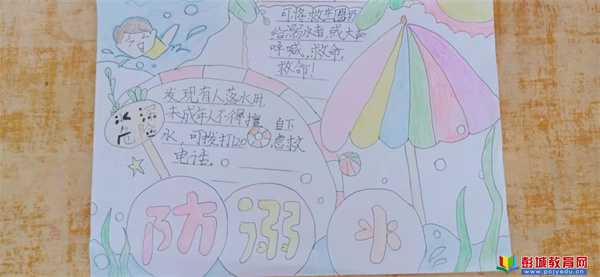 可将救生圈扔
给溺水者,或大声
呼喊,救命,
救命!
发现有人落水时
未成年人不得擅自下
水,可拨打120急救
电话。
水深
危险
防溺水
彭城教育网
www.pcjyedu.cn